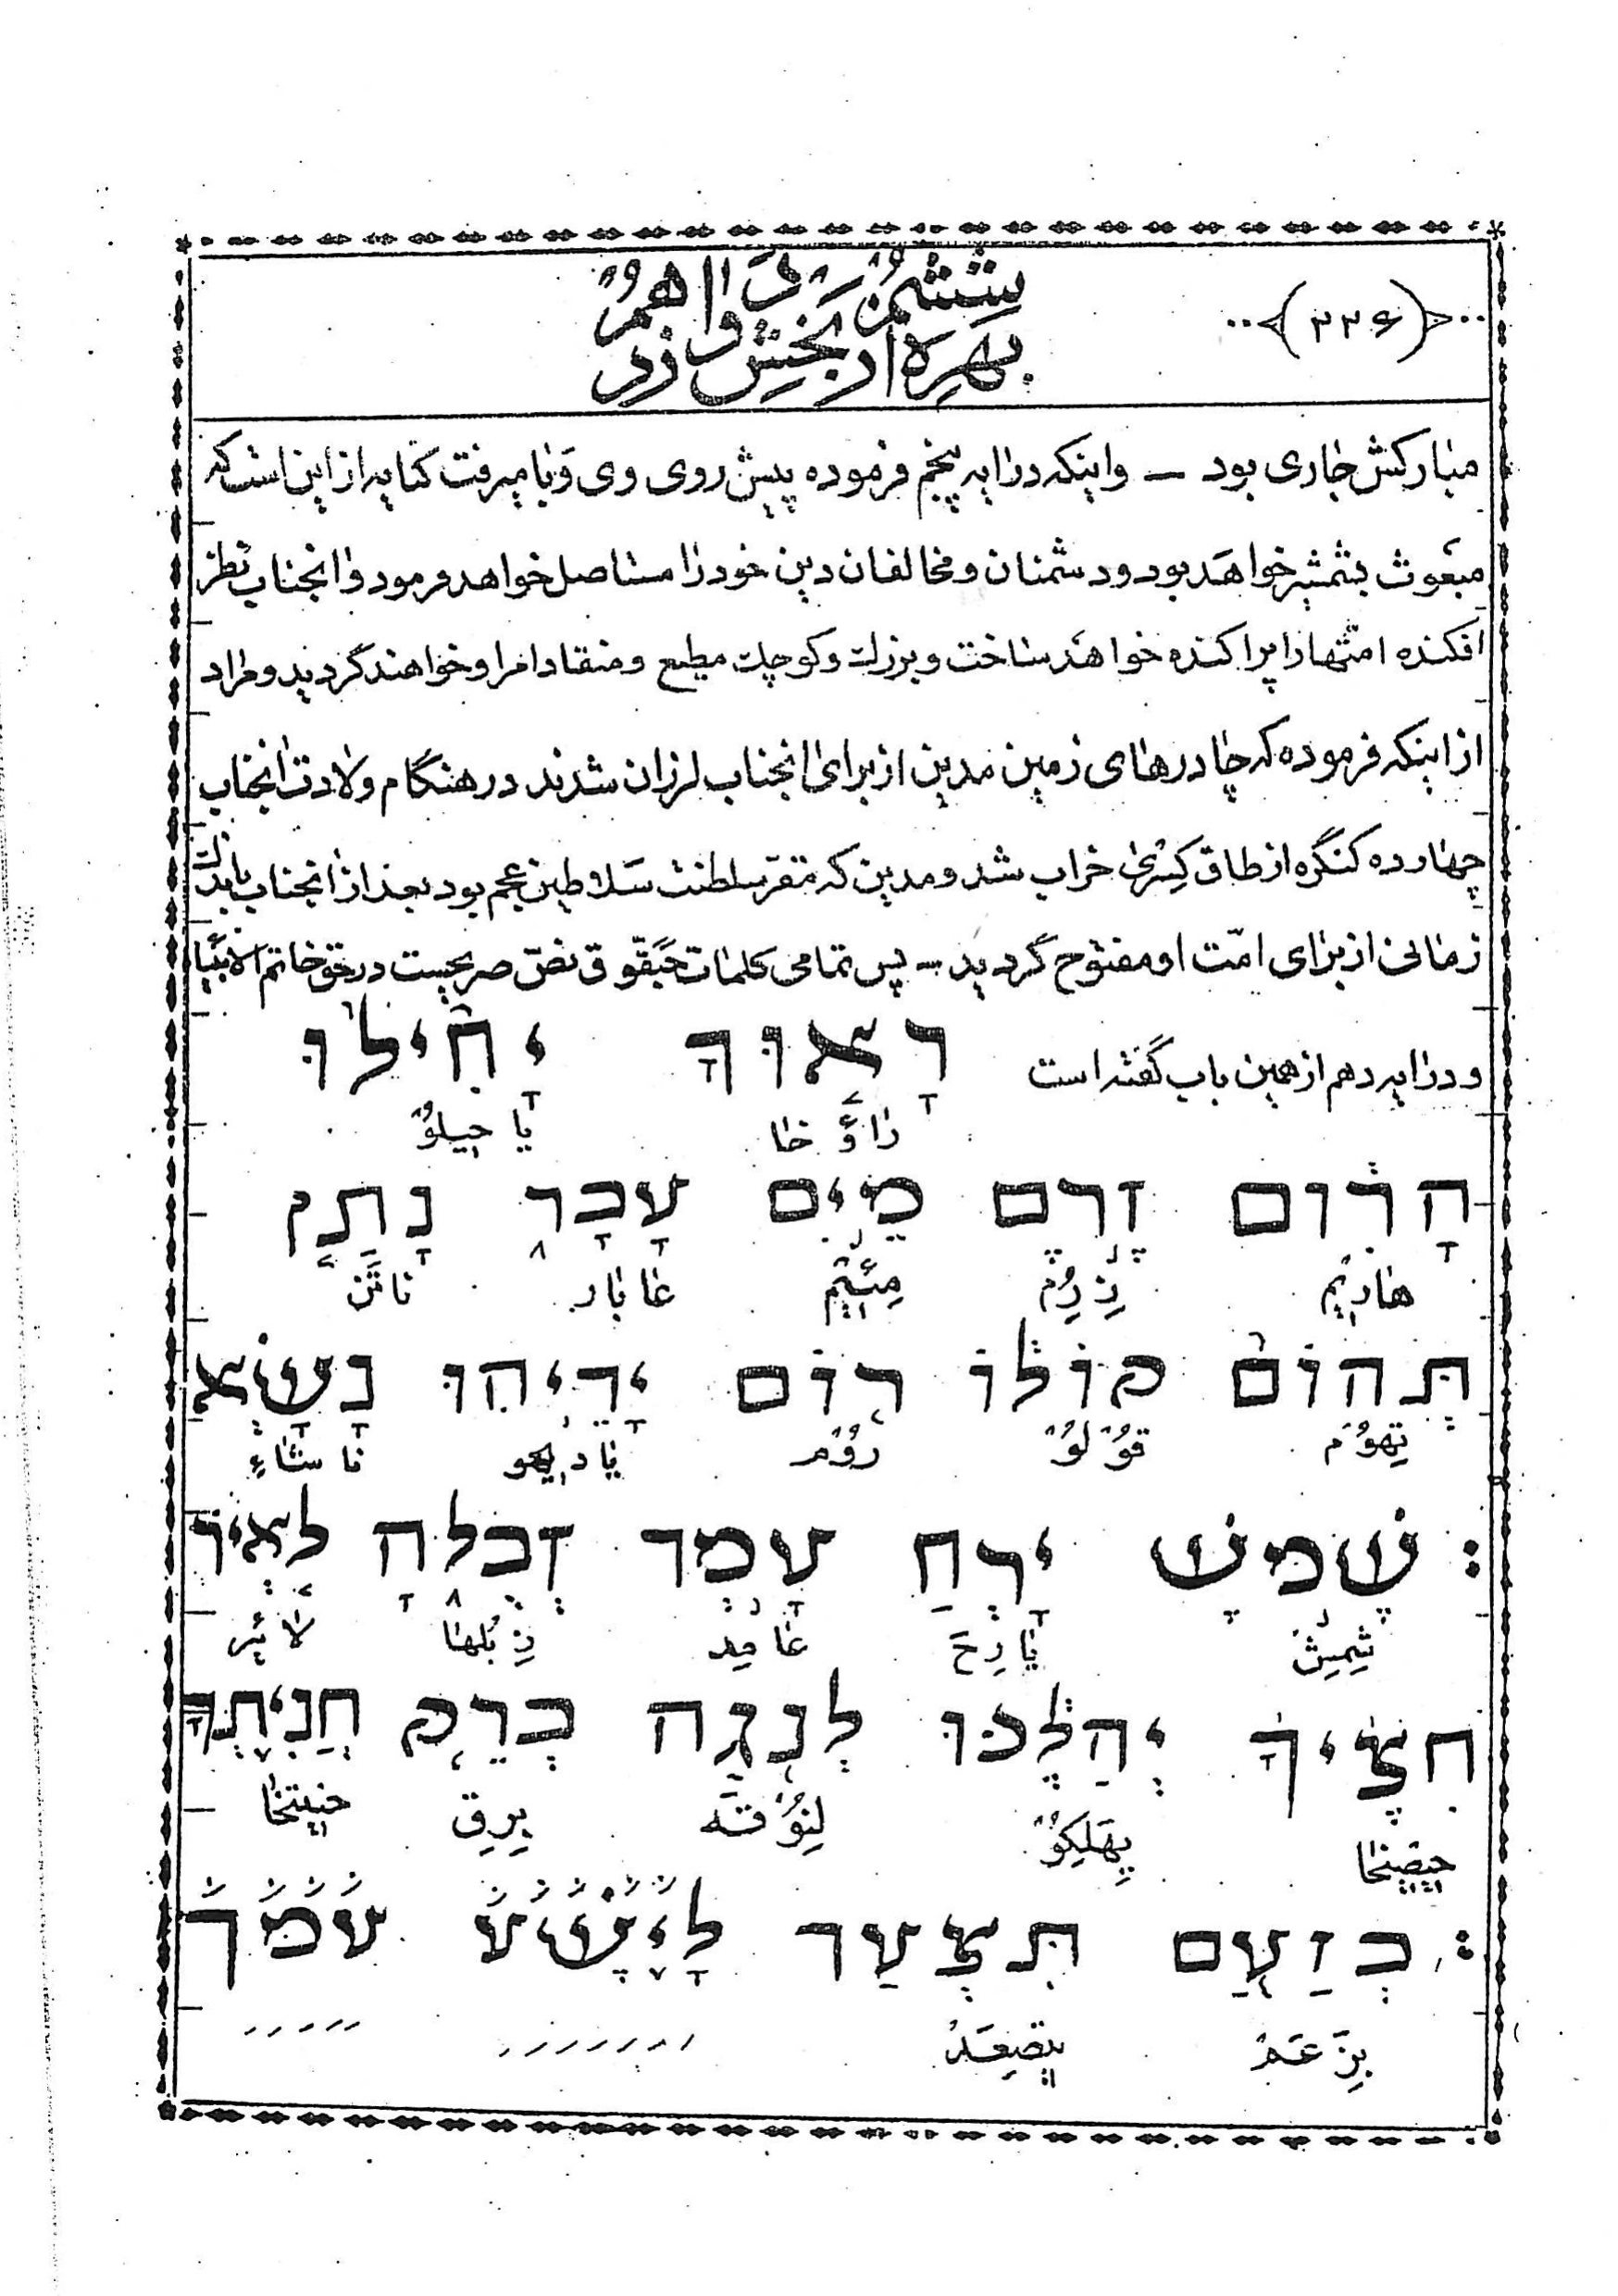 ﴿۲۲۶﴾
ششمین
بهره از بخش دوازدهم
مبارکش جاری بود – واینکه درایه پنجم فرموده پیش روی وی وبا میرفت کنایه از این است که
مبعوث بشمشیر خواهد بود ودشمنان ومخالفان دین خود را مستاصل خواهد فرمود وانجناب نظر
افکنده امتها را پراکنده خواهد ساخت وبزرک وکوچک مطیع ومنقاد امر او خواهند گردید ومراد
از اینکه فرموده که چادرهای زمین مدین از برای انجناب لرزان شدند در هنگام ولادت انجناب
چهارده کنگره از طاق کسری خراب شد ومدین که مقر سلطنت سلاطین عجم بود بعد از انجناب باندک
زمانی از برای امّت او مفتوح گردید – پس تمامی کلمات حبقوق نصّ صریحست در حق خاتم الانبیا
ودرایه دهم از همین باب گفته است רָאוּךָ יָחִילוּ
راؤخا یاحیلوُ
הָרִים זֶרֶם מַיִם עָבָר נָתַן
هاریم زِرِم مَیِیم عابار ناتَن
תְּהוֹם קוֹלוֹ רוֹם יָדֵיהוּ נָשָׂא
تِهوُم قوُلوُ روُم یادیهو ناشاء
: שֶׁמֶשׁ יָרֵחַ עָמַד זְבֻלָה לְאוֹר
شِمِش یارِحَ عامِد زِبُلها لائر
חִצֶּיךָ יְהַלֵּכוּ לְנֹגַהּ בְּרַק חֲנִיתֶךָ
حیصیخا یِهَلِکوُ لِنوُقَه بِرِق حنیتخا
: בְּזַעַם תִּצְעַד לְיֵשַׁע עַמֶּךָ
بِزَعَم تیصِعَد